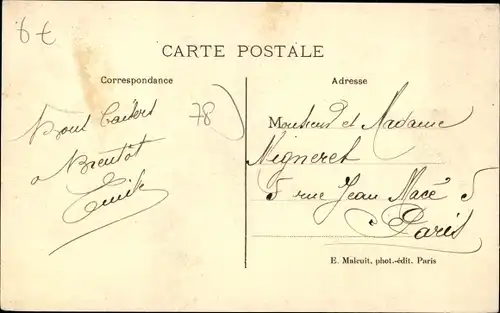 6€
CARTE POSTALE
Correspondance
Adresse
Bons baisers
a Bientôt
Emile
78
Monsieur et Madame
Migneret
5 rue Jean Macé 5
Paris
E. Malcuit, phot.-édit. Paris